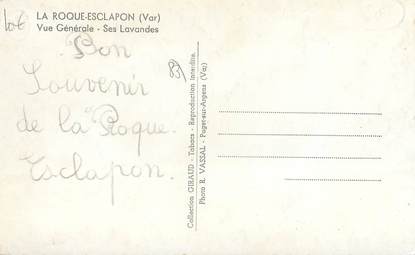 LA ROQUE-ESCLAPON (Var)
Vue Générale - Ses Lavandes
Bon
Souvenir
de la Roque.
Esclapon.
83
Collection GIRAUD - Tabacs - Reproduction interdite.
Photo R. VASSAL - Puget-sur-Argens (Var)